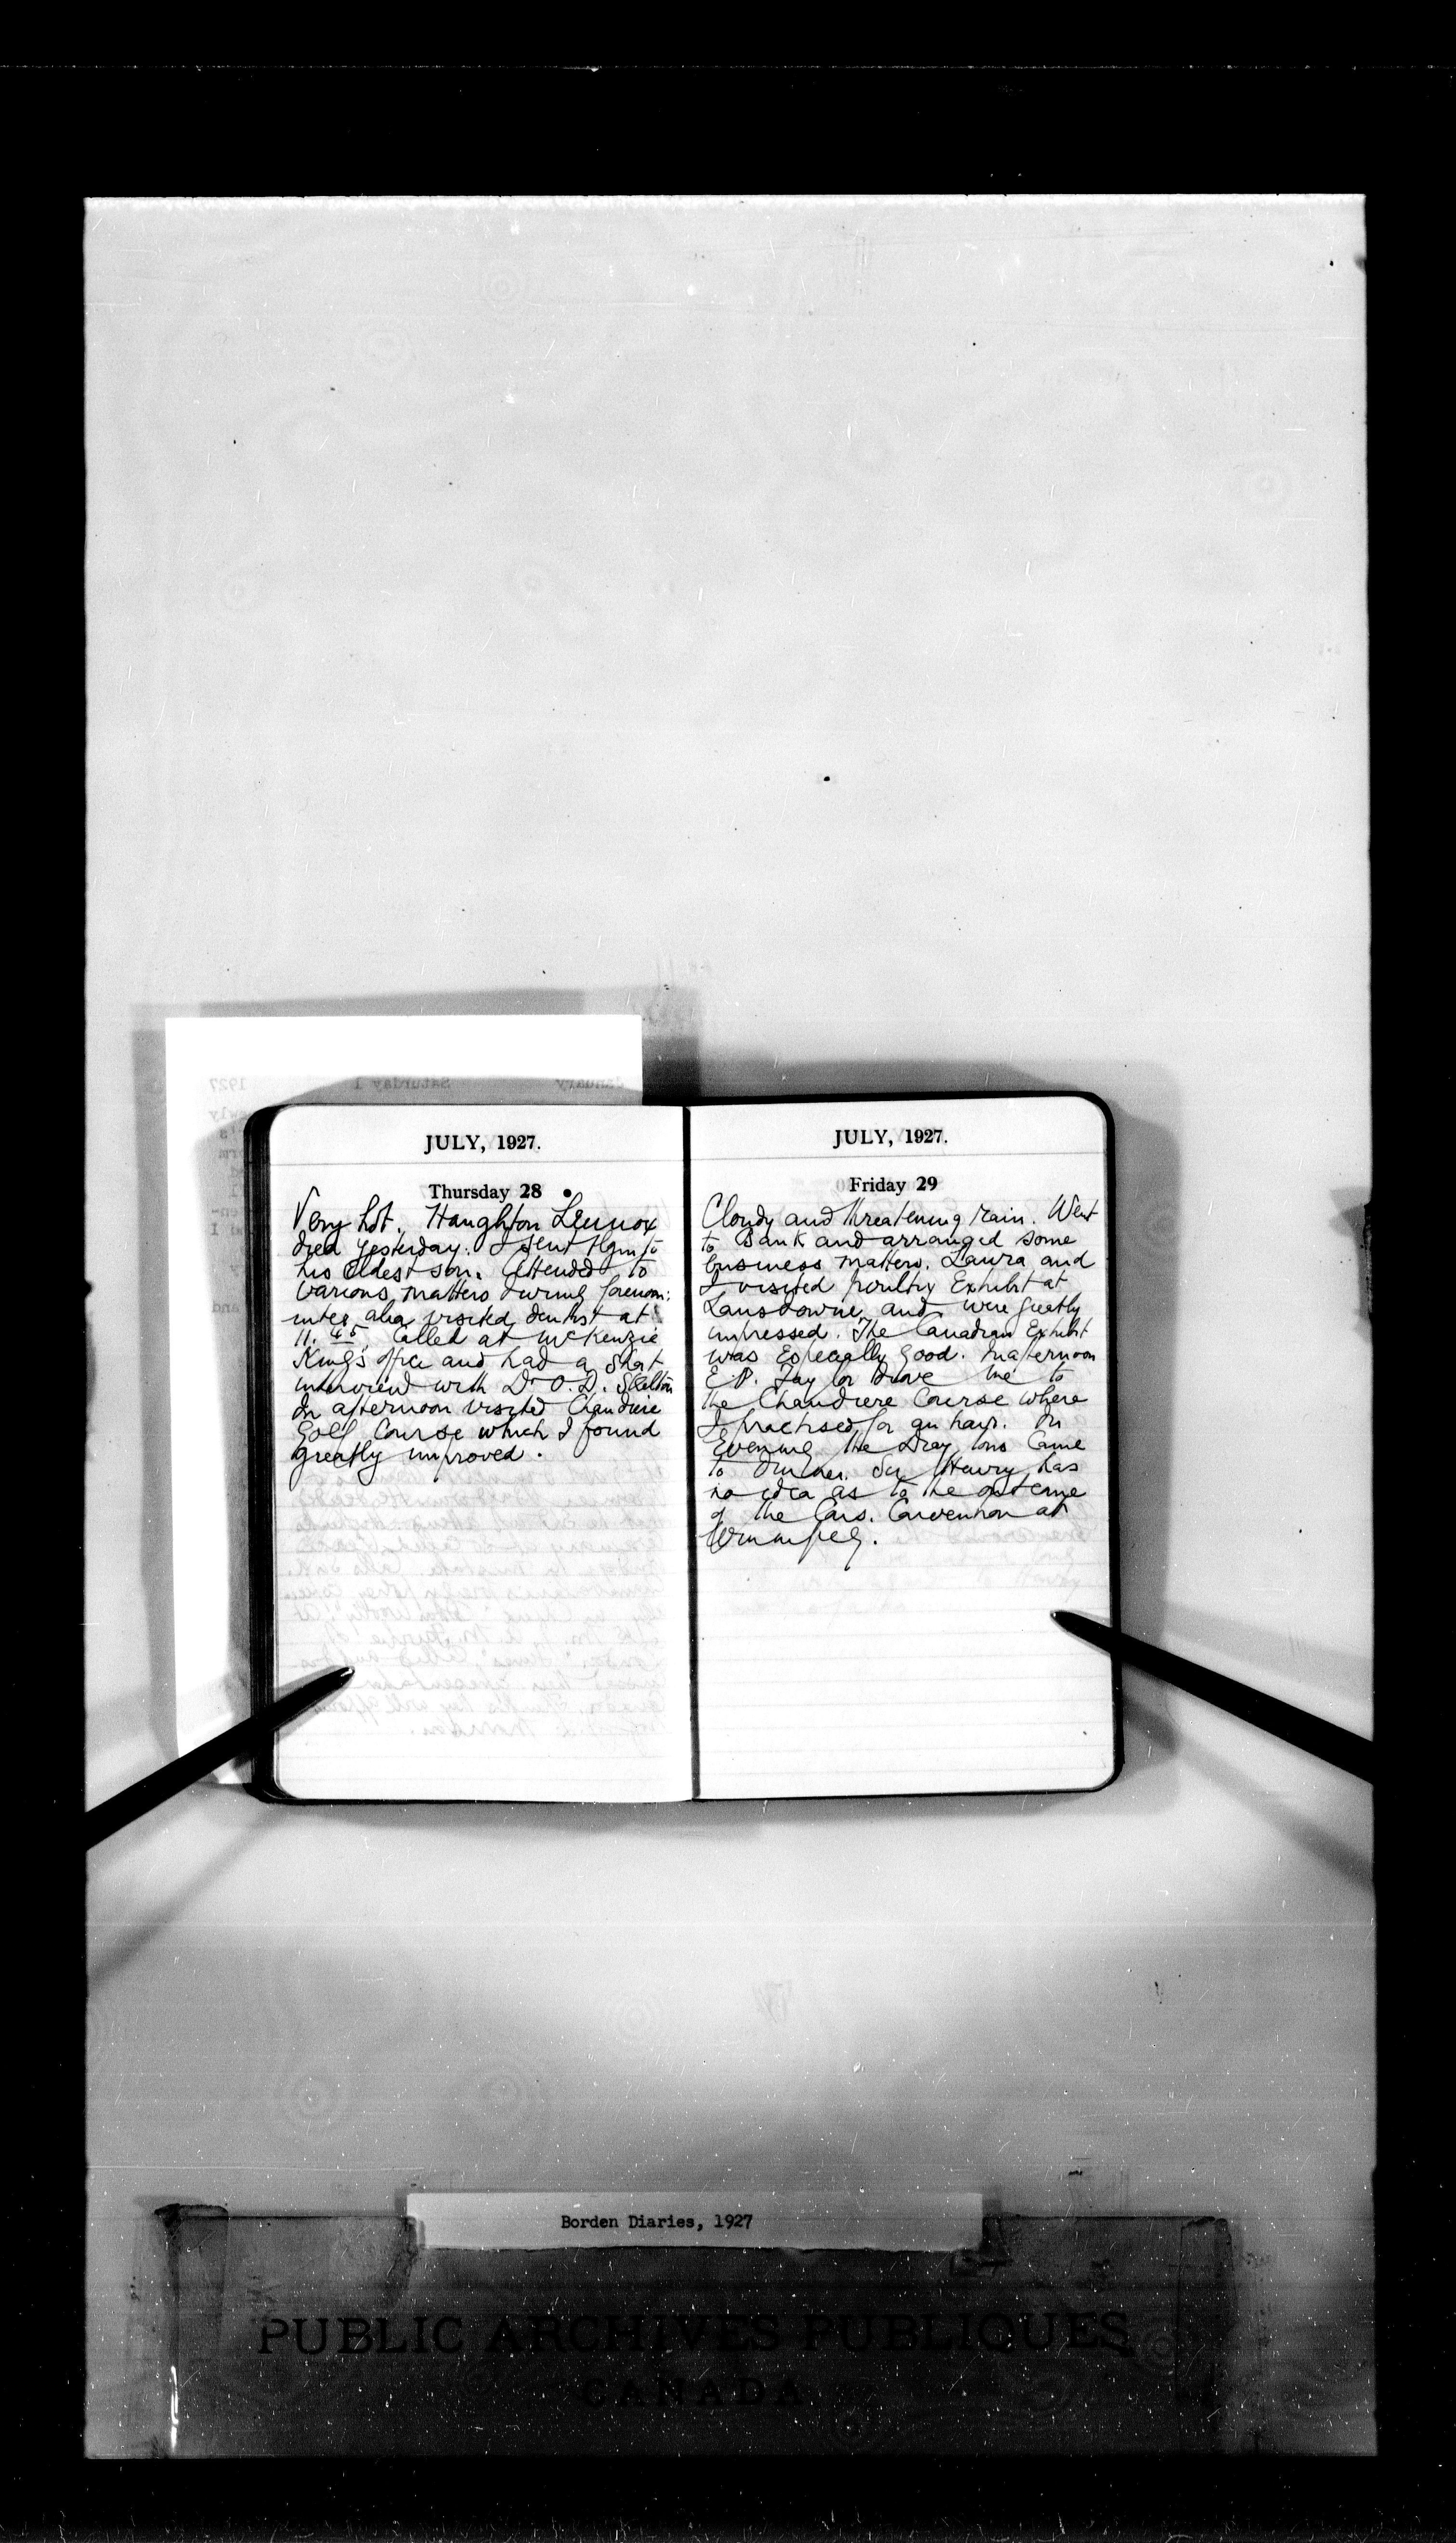 JULY, 1927.
Thursday 28
Very hot. Haughton Lennox
died yesterday. I sent tlgm to
his eldest son. Attended to
various matters during forenoon;
inter alia visited dentist at
11.45. Called at McKenzie
King's office and had a short
interview with Dr O.D. Skelton
In afternoon visited Chaudiere
Golf Course which I found
greatly improved.
JULY, 1927.
Friday 29
Cloudy and threatening rain. Went
to Bank and arranged some
business matters. Laura and
I visited Poultry Exhibit at
Lansdowne and were greatly
impressed. The Canadian Exhibit
was especially good. In afternoon
E.P. Taylor drove me to
the Chaudiere Course where
I practised for an hour. In
Evening the Draytons came
to dinner. Sir Henry has
no idea as to the outcome
of the Cons. Convention at
Winnipeg.
Borden Diaries, 1927
PUBLIC ARCHIVES PUBLIQUES
CANADA